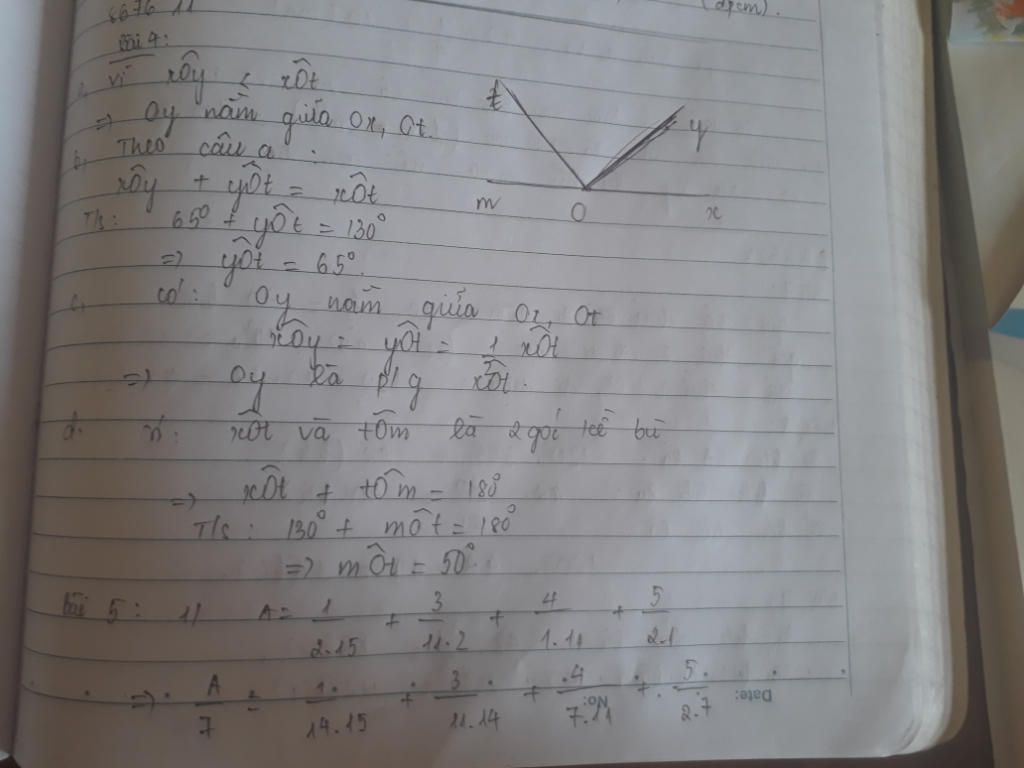 (đpcm).
bài 4:
a, vì xÔy < xÔt
=> Oy nằm giữa Ox, Ot.
b, Theo câu a :
xÔy + yÔt = xÔt
T/s: 65° + yÔt = 130°
=> yÔt = 65°.
c, có: Oy nằm giữa Ox, Ot
xÔy = yÔt = 1/2 xÔt
=> Oy là p/g xÔt.
d. vì: xÔt và tÔm là 2 góc kề bù
=> xÔt + tÔm = 180°
T/s: 130° + mÔt = 180°
=> mÔt = 50°.
bài 5: 1/ A = 1/2.15 + 3/11.2 + 4/1.11 + 5/2.1
=> A/7 = 1/14.15 + 3/11.14 + 4/7.11 + 5/2.7
t
y
m
O
x
No:
Date: